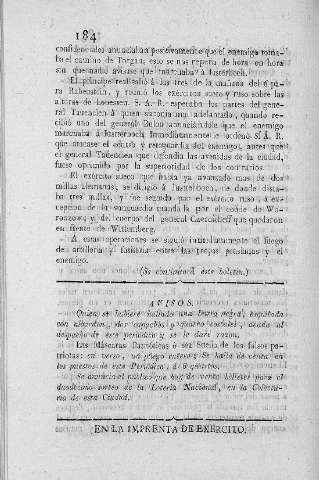 184
confidenciales anunciaban positivamente que el enemigo toma-
ba el camino de Torgau; esto se nos repetia de hora en hora
sin que nadie avisase que marchaba á Juterboch.
El príncipe real salió á las tres de la mañana del 6 pa-
ra Rabenstein, y reunió los exércitos sueco y ruso sobre las
alturas de Lobessen. S. A. R. esperaba los partes del gene-
ral Tauenzien á quien suponia muy adelantado, quando re-
cibió uno del general Bulow anunciándole que el enemigo
marchaba á Juterboch. Inmediatamente le ordenó S. A. R.
que atacase el costado y retaguardia del enemigo, antes que
el general Tauenzien que defendia las avenidas de la ciudad,
fuese oprimido por la superioridad de los contrarios.
El exército sueco que habia ya avanzado mas de dos
millas alemanas, se dirigió á Juterboch, de donde dista-
ba tres millas, y fue seguido por el exército ruso, á ex-
cepcion de la vanguardia mandada por el conde de Wo-
ronzow, y del cuerpo del general Czernicheff que quedaron
en frente de Wittemberg.
A estas operaciones se siguió inmediatamente el fuego
de artillería y fusilería entre las tropas prusianas y el
enemigo.
(Se continuará este boletin.)
AVISOS.
Quien se hubiere hallado una burra negra,
con alpargatas, dos capachos y quatro costales, acuda al
despacho de este periódico y se le dará razon.
Las Máscaras Patrióticas ó sea Sátira de los falsos pa-
triotas: en verso, un pliego entero: Se halla de venta en
los puestos de este Periódico, á 6 quartos.
Se anuncia al público que hay de venta billetes para el
duodécimo sorteo de la Lotería Nacional, en la Colecturía
de esta Ciudad.
EN LA IMPRENTA DE EXERCITO.